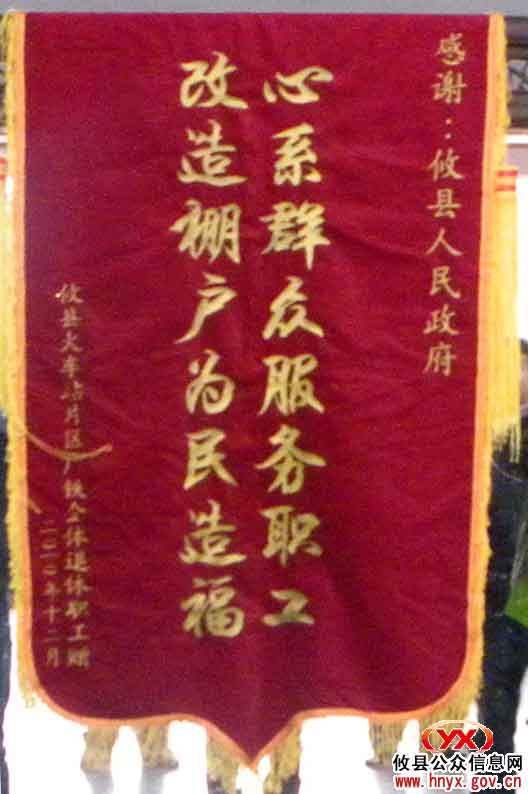 感谢：攸县人民政府
心系群众服务职工
改造棚户为民造福
攸县火车站片区广铁全体退休职工赠
二〇一〇年十二月
YX
攸县公众信息网
www.hnyx.gov.cn